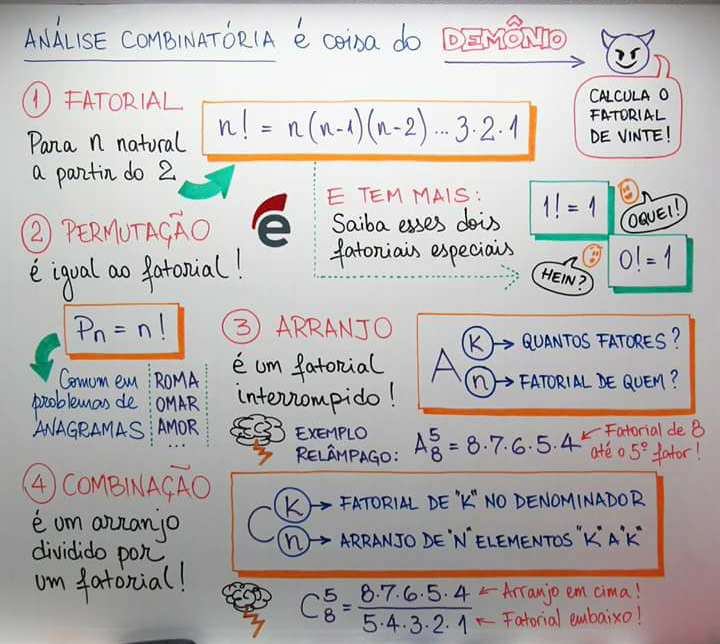 ANÁLISE COMBINATÓRIA é coisa do DEMÔNIO
CALCULA O
FATORIAL
DE VINTE!
1 FATORIAL
Para n natural
a partir do 2
n! = n(n-1)(n-2)...3·2·1
E TEM MAIS:
Saiba esses dois
fatoriais especiais
1! = 1
OQUEI!
0! = 1
HEIN?
e
2 PERMUTAÇÃO
é igual ao fatorial!
Pn = n!
Comum em
problemas de
ANAGRAMAS
ROMA
OMAR
AMOR
...
3 ARRANJO
é um fatorial
interrompido!
A
k → QUANTOS FATORES?
n → FATORIAL DE QUEM?
EXEMPLO
RELÂMPAGO:
A₈⁵ = 8·7·6·5·4
Fatorial de 8
até o 5º fator!
4 COMBINAÇÃO
é um arranjo
dividido por
um fatorial!
C
k → FATORIAL DE "K" NO DENOMINADOR
n → ARRANJO DE "N" ELEMENTOS "K" A "K"
C₈⁵ = 8·7·6·5·4 ← Arranjo em cima!
5·4·3·2·1 ← Fatorial embaixo!